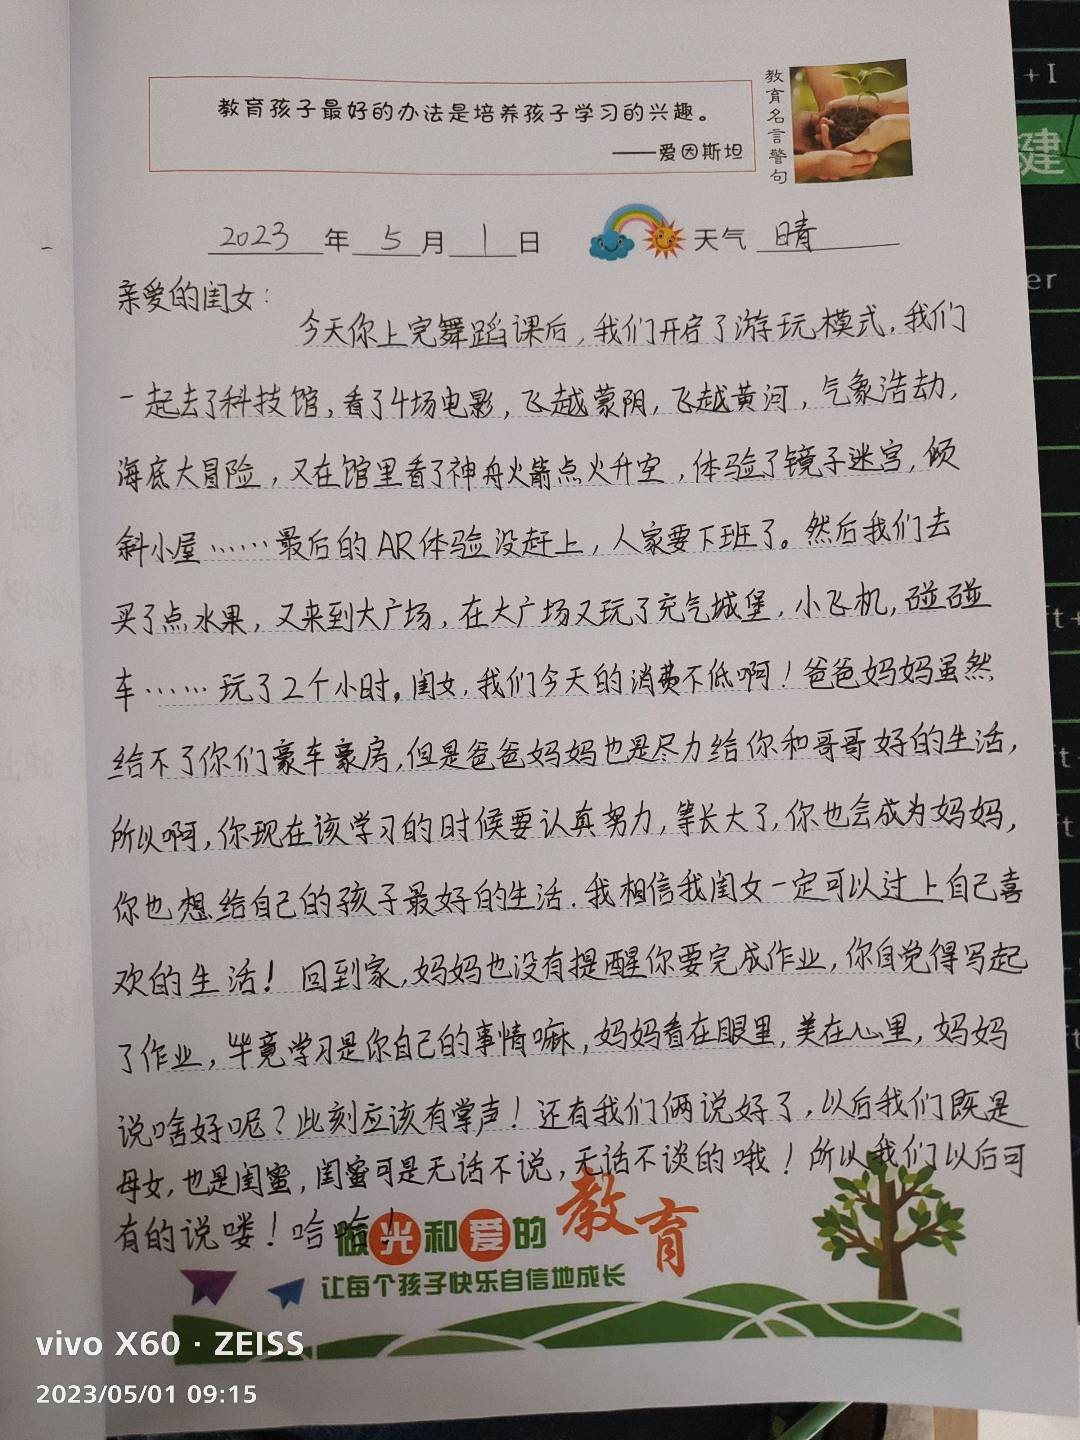 教育孩子最好的办法是培养孩子学习的兴趣。
——爱因斯坦
教育名言警句
2023年 5月 1日 天气 晴
亲爱的闺女:
今天你上完舞蹈课后,我们开启了游玩模式,我们
一起去了科技馆,看了4场电影,飞越蒙阴,飞越黄河,气象浩劫,
海底大冒险,又在馆里看了神舟火箭点火升空,体验了镜子迷宫,倾
斜小屋……最后的AR体验没赶上,人家要下班了。然后我们去
买了点水果,又来到大广场,在大广场又玩了充气城堡,小飞机,碰碰
车……玩了2个小时。闺女,我们今天的消费不低啊!爸爸妈妈虽然
给不了你们豪车豪房,但是爸爸妈妈也是尽力给你和哥哥好的生活,
所以啊,你现在该学习的时候要认真努力,等长大了,你也会成为妈妈,
你也想给自己的孩子最好的生活.我相信我闺女一定可以过上自己喜
欢的生活!回到家,妈妈也没有提醒你要完成作业,你自觉得写起
了作业,毕竟学习是你自己的事情嘛,妈妈看在眼里,美在心里,妈妈
说啥好呢?此刻应该有掌声!还有我们俩说好了,以后我们既是
母女,也是闺蜜,闺蜜可是无话不说,无话不谈的哦!所以我们以后可
有的说喽!哈哈!
做光和爱的教育
让每个孩子快乐自信地成长
vivo X60 · ZEISS
2023/05/01 09:15
+I
建
er
ft+